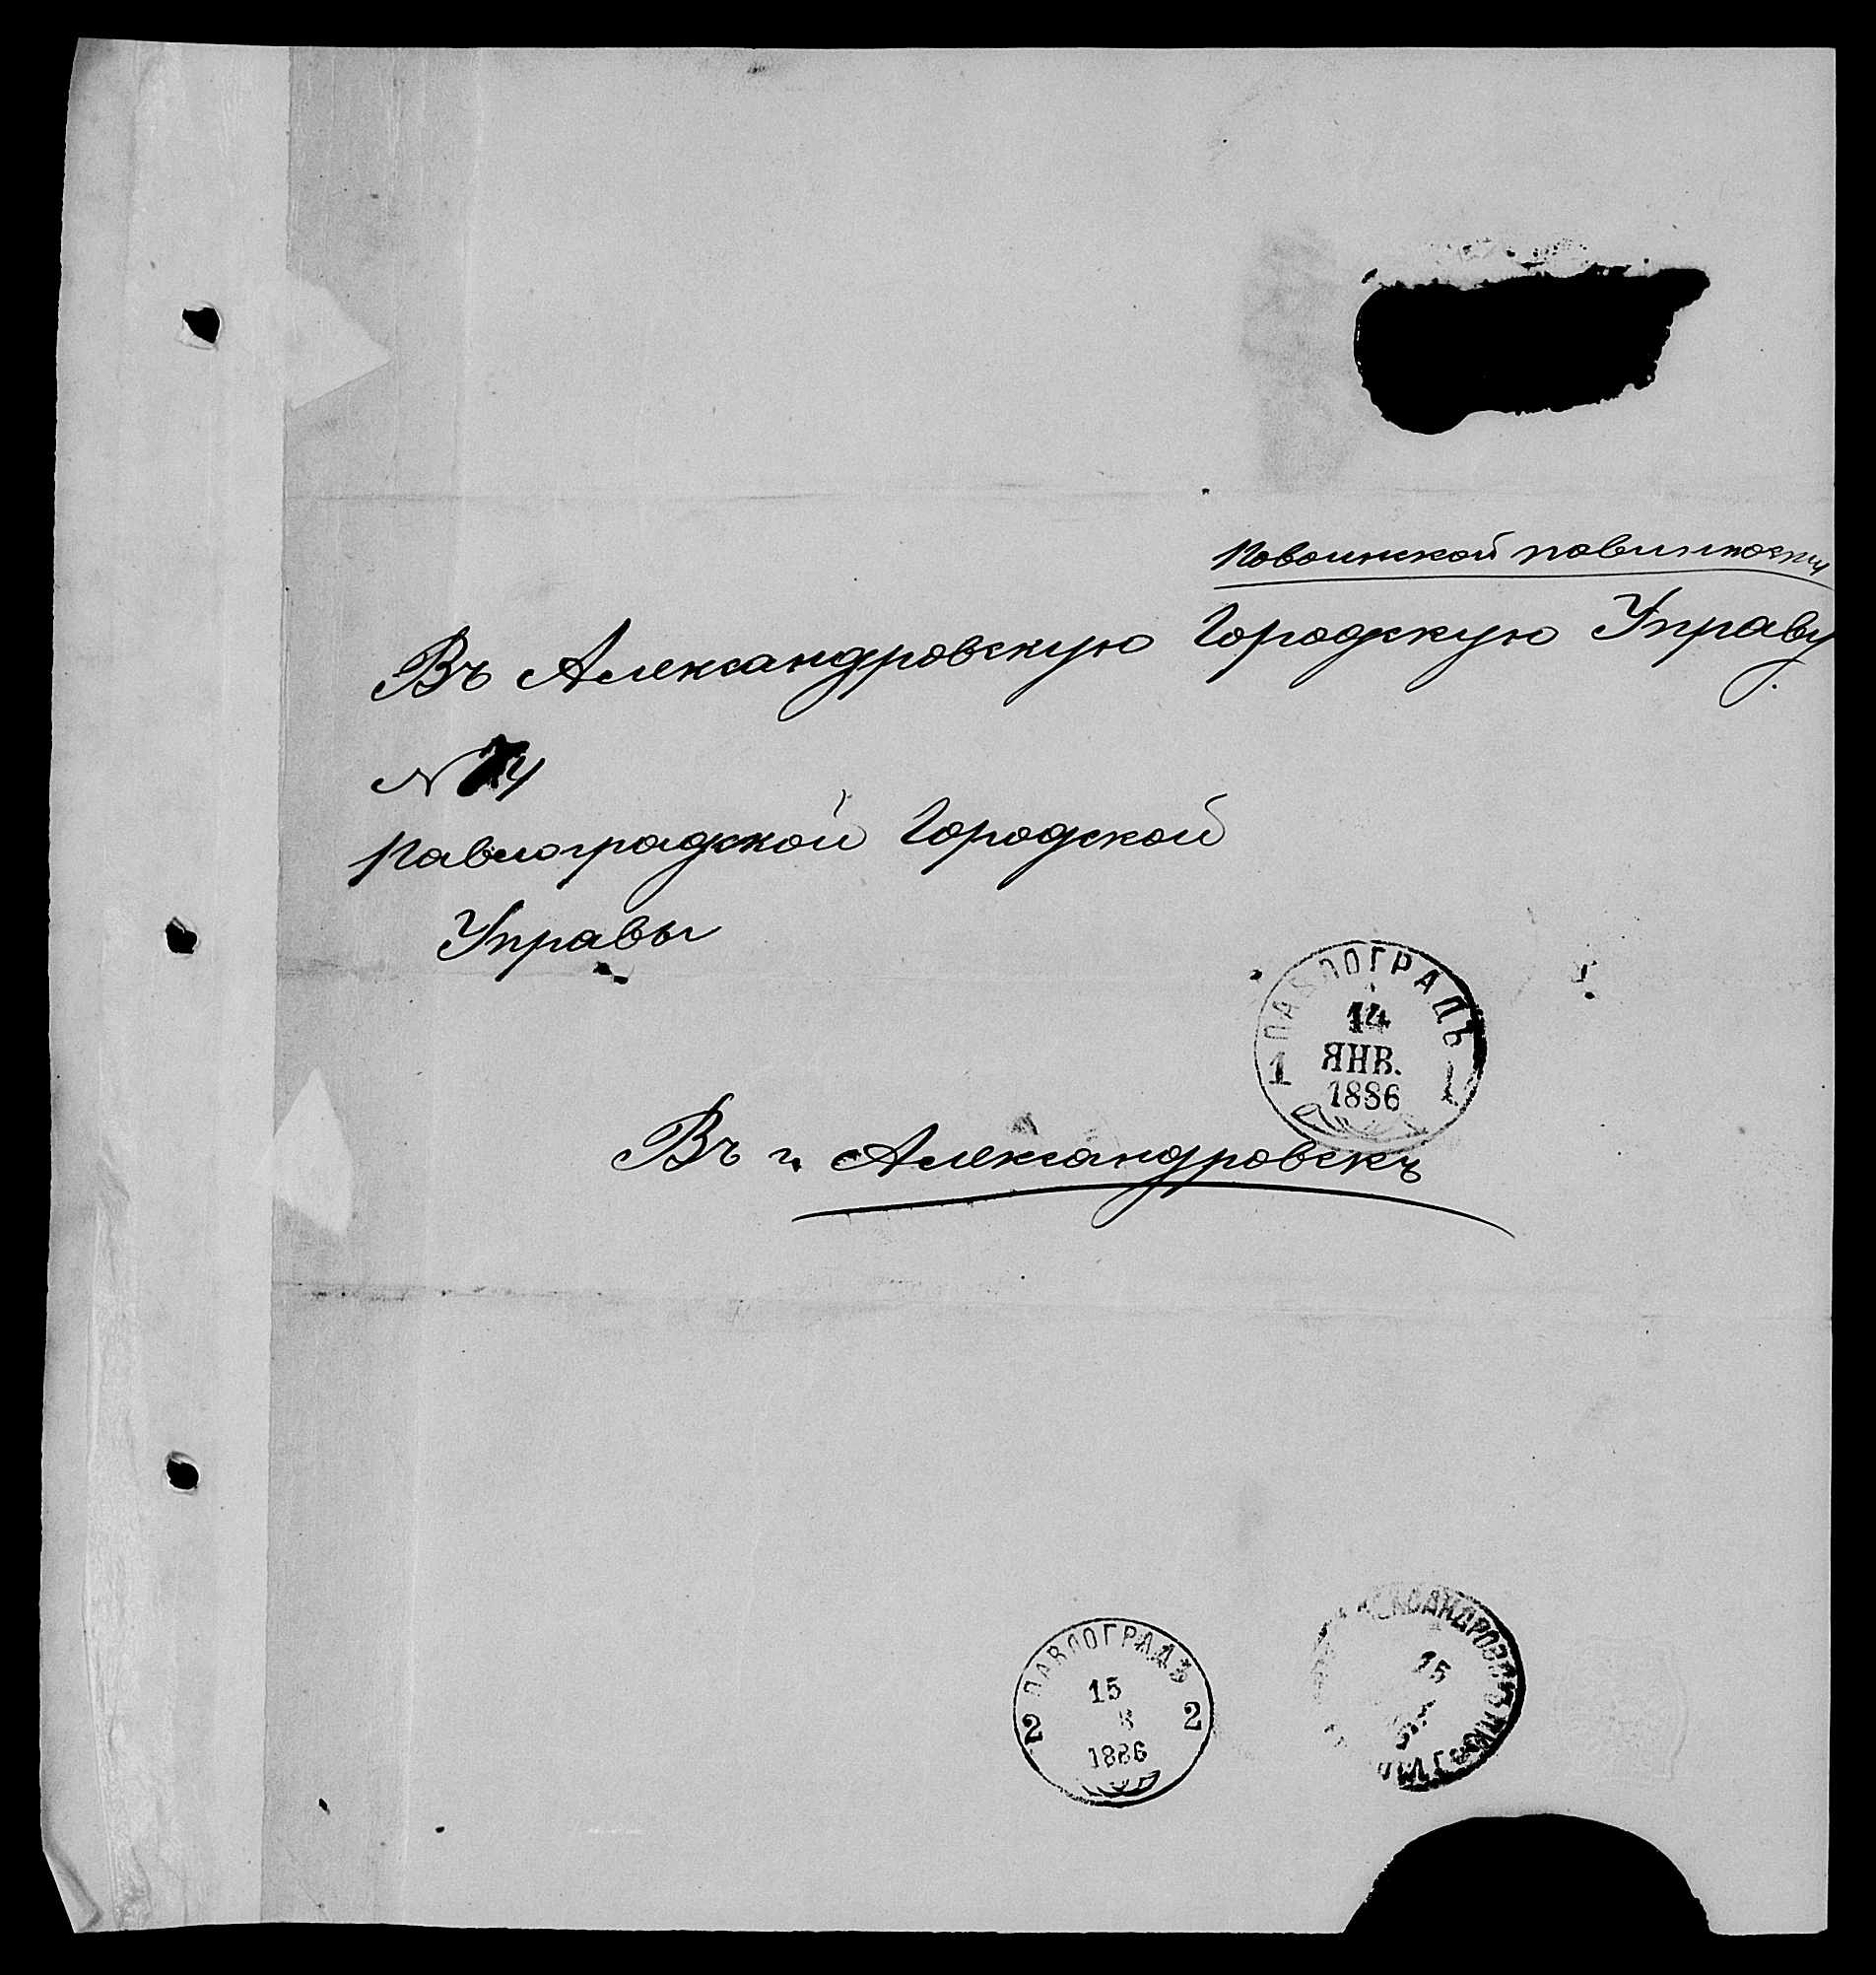 По воинской повинности
Въ Александровскую Городскую Управу.
N 74
Павлоградской Городской
Управы
ПАВЛОГРАДЪ
14
ЯНВ.
1886
1 1
Въ г. Александровскъ
ПАВЛОГРАДЪ
15
1886
2 2
15